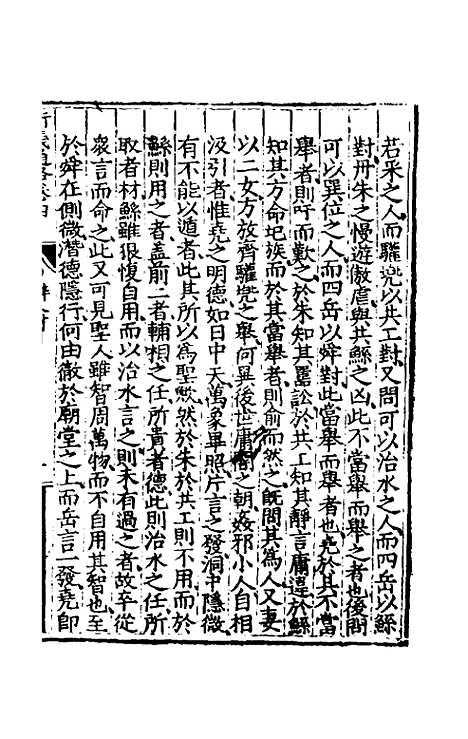 若采之人而驩兠以共工對又問可以治水之人而四岳以鯀
對丹朱之慢遊傲虐與共鯀之凶此不當舉而舉之者也後問
可以巽位之人而四岳以舜對此當舉而舉者也堯於其不當
舉者則吁而歎之於朱知其嚚訟於共工知其靜言庸違於鯀
知其方命圮族而於其當舉者則俞而然之旣問其為人又妻
以二女方放齊驩兠之舉何異後世庸闇之朝姦邪小人自相
汲引者惟堯之明德如日中天萬象畢照片言之發洞中隱微
有不能以遁者此其所以為聖歟然於朱於共工則不用而於
鯀則用之者盖前二者輔相之任所貴者德此則治水之任所
取者材鯀雖狠愎自用而以治水言之則未有過之者故卒從
衆言而命之此又可見聖人雖智周萬物而不自用其智也至
於舜在側微潛德隱行何由徹於廟堂之上而岳言一發堯即